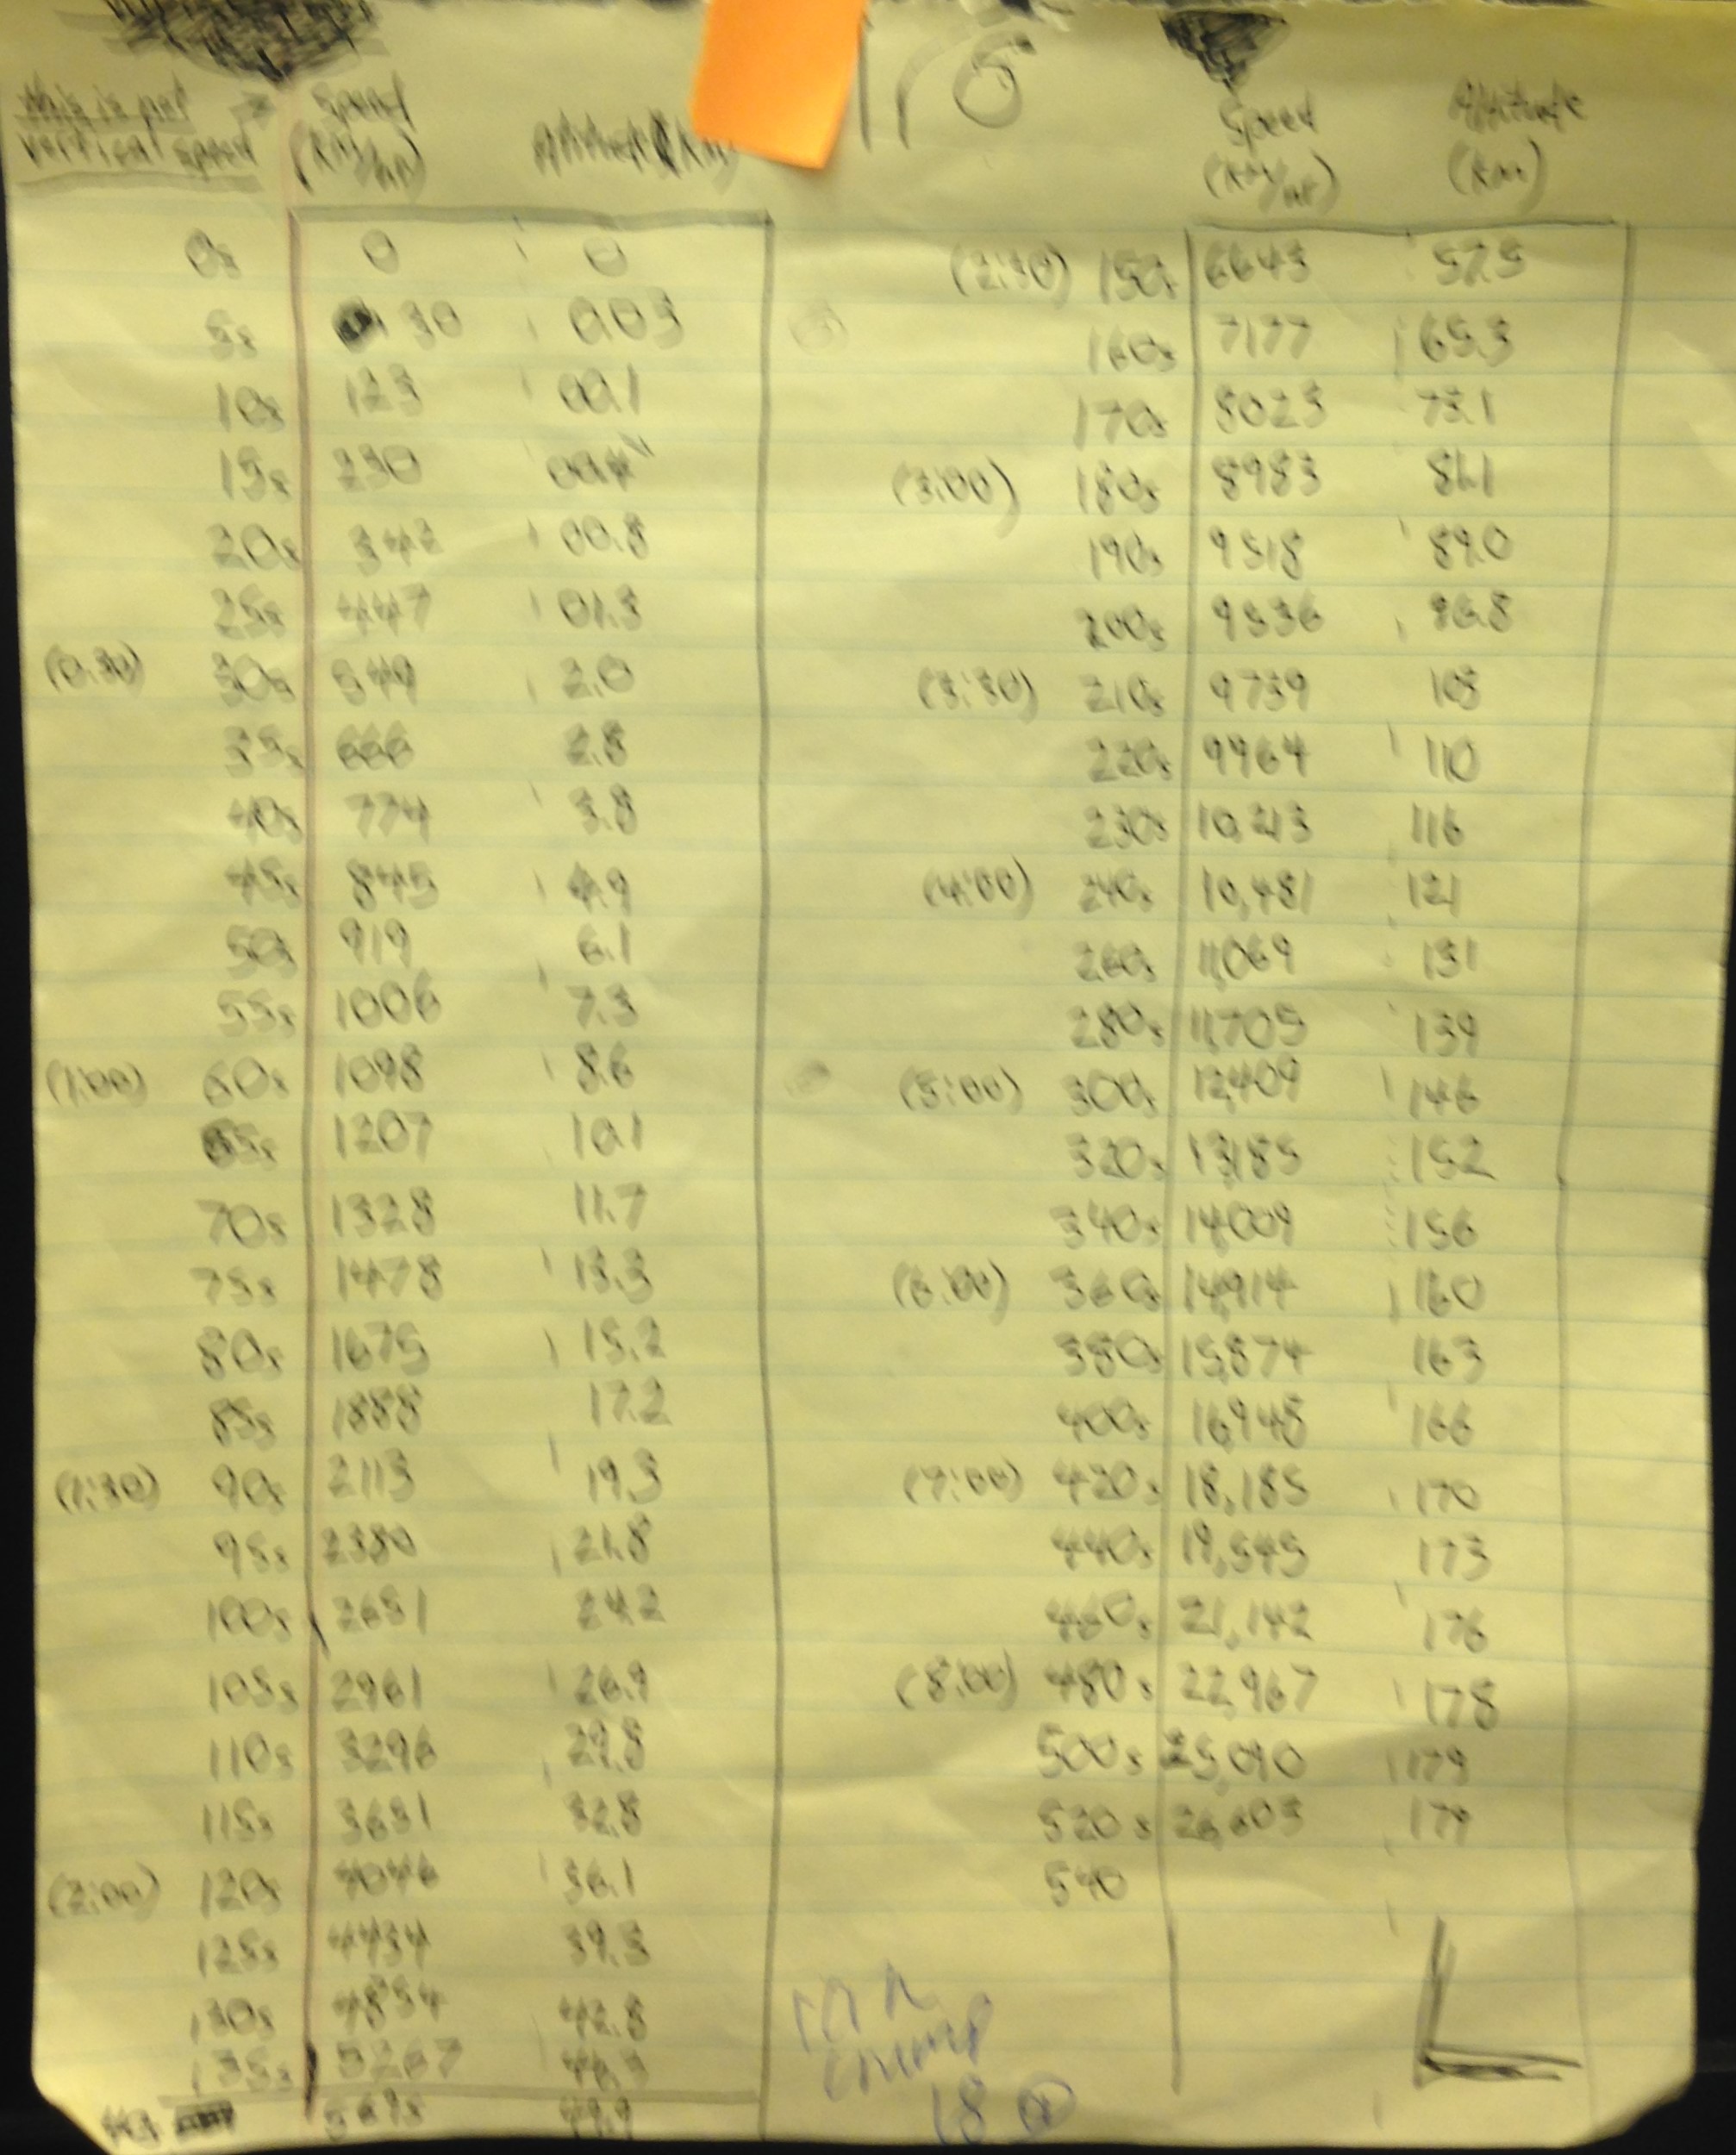 this is not → Speed
vertical speed (km/hr) Altitude (km)
0s 0 0
5s 30 0.03
10s 123 00.1
15s 230 00.4
20s 342 00.8
25s 447 01.3
(0:30) 30s 549 2.0
35s 666 2.8
40s 774 3.8
45s 845 4.9
50s 919 6.1
55s 1006 7.3
(1:00) 60s 1098 8.6
65s 1207 10.1
70s 1328 11.7
75s 1478 13.3
80s 1675 15.2
85s 1888 17.2
(1:30) 90s 2113 19.3
95s 2380 21.8
100s 2651 24.2
105s 2961 26.9
110s 3296 29.8
115s 3651 32.8
(2:00) 120s 4046 36.1
125s 4434 39.3
130s 4854 42.8
135s 5267 46.3
49.9
Speed Altitude
(km/hr) (km)
(2:30) 150s 6643 57.5
160s 7177 65.3
170s 8023 73.1
(3:00) 180s 8983 81.1
190s 9518 89.0
200s 9536 96.8
(3:30) 210s 9739 103
220s 9964 110
230s 10,213 116
(4:00) 240s 10,481 121
260s 11,069 131
280s 11,705 139
(5:00) 300s 12,409 146
320s 13,185 152
340s 14,009 156
(6:00) 360s 14,914 160
380s 15,874 163
400s 16,948 166
(7:00) 420s 18,185 170
440s 19,545 173
460s 21,142 176
(8:00) 480s 22,967 178
500s 25,090 179
520s 26,603 179
540
L
18